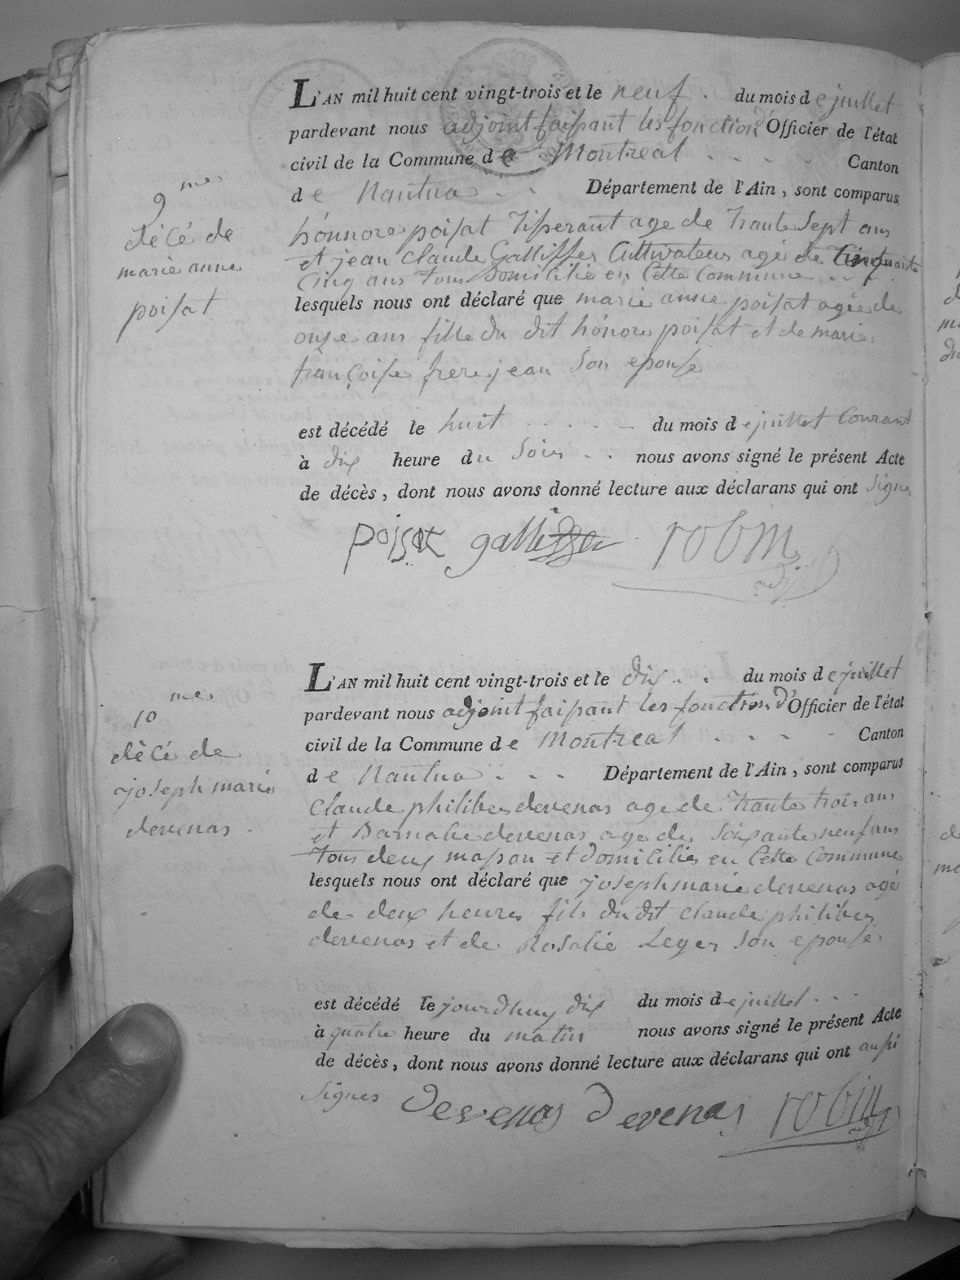 L'AN mil huit cent vingt-trois et le neuf . du mois de juillet
pardevant nous adjoint faisant les fonction d'Officier de l'état
civil de la Commune de Montreal . . . . Canton
de Nantua . . Département de l'Ain, sont comparus
9 mes
décé de
marie anne
poisat
hónnore poisat Tisserant age de trante Sept ans
et jean Claude Galliffer Cultivateur agé de Cinquante
Cinq ans tous Domicilié en Cette Commune . .
lesquels nous ont déclaré que marie anne poisat agée de
onze ans fille du dit hónore poisat et de marie
françoise frerejean Son epouse
est décédé le huit . . . . . du mois de juillet Courant
à dix heure du Soir . . nous avons signé le présent Acte
de décès, dont nous avons donné lecture aux déclarans qui ont Signé
poisat galliffer robin
adj
L'AN mil huit cent vingt-trois et le dix . . du mois de juillet
pardevant nous adjoint faisant les fonction d'Officier de l'état
civil de la Commune de Montreal . . . . Canton
de Nantua . . . Département de l'Ain, sont comparus
10 mes
décé de
joseph marie
devenas .
Claude philiber devenas age de trante trois ans
et Barnabé devenas age de Soixante neuf ans
tous deux masson et domicilié en Cette Commune
lesquels nous ont déclaré que joseph marie devenas agé
de deux heures fils du dit Claude philiber
devenas et de Rosalie Leger Son epouse
est décédé le jourdhuy dix du mois de juillet . . .
à quatre heure du matin nous avons signé le présent Acte
de décès, dont nous avons donné lecture aux déclarans qui ont aussi
Signes devenas Devenas robin
adj